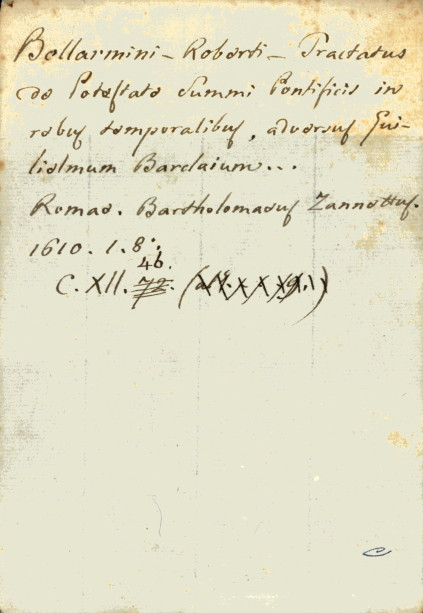 Bellarmini - Roberti - Tractatus
de Potestate Summi Pontificis in
rebus temporalibus, adversus Gui-
lielmum Barclaium...
Romae. Bartholomaeus Zannettus.
1610. 1. 8°.
46.
C. XII. 72.
C